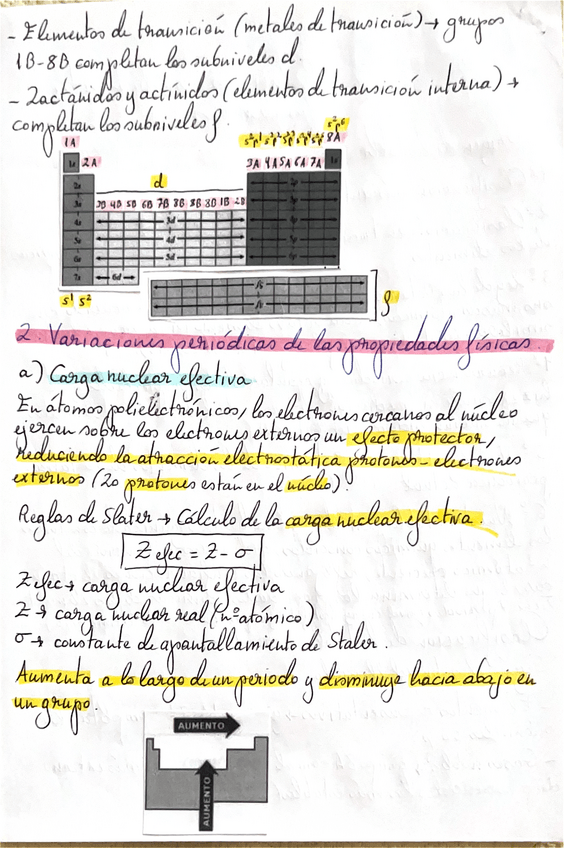 - Elementos de transición (metales de transición) → grupos
1B-8B completan los subniveles d.
- Lactánidos y actínidos (elementos de transición interna) →
completan los subniveles f.
s²p¹ s²p² s²p³ s²p⁴ s²p⁵ s²p⁶
1A 8A
1s 2A d 3A 4A 5A 6A 7A 1s
2s 2p
3s 3B 4B 5B 6B 7B 8B 8B 8B 1B 2B 3p
4s 3d 4p
5s 4d 5p
6s 5d 6p
7s 6d
s¹ s² f
2. Variaciones periódicas de las propiedades físicas.
a) Carga nuclear efectiva
En átomos polielectrónicos, los electrones cercanos al núcleo
ejercen sobre los electrones externos un efecto protector,
reduciendo la atracción electrostática protones-electrones
externos (Lo protones están en el núcleo).
Reglas de Slater → Cálculo de la carga nuclear efectiva.
Z efec = Z - σ
Z efec → carga nuclear efectiva
Z → carga nuclear real (nº atómico)
σ → constante de apantallamiento de Staler.
Aumenta a lo largo de un periodo y disminuye hacia abajo en
un grupo.
AUMENTO
AUMENTO